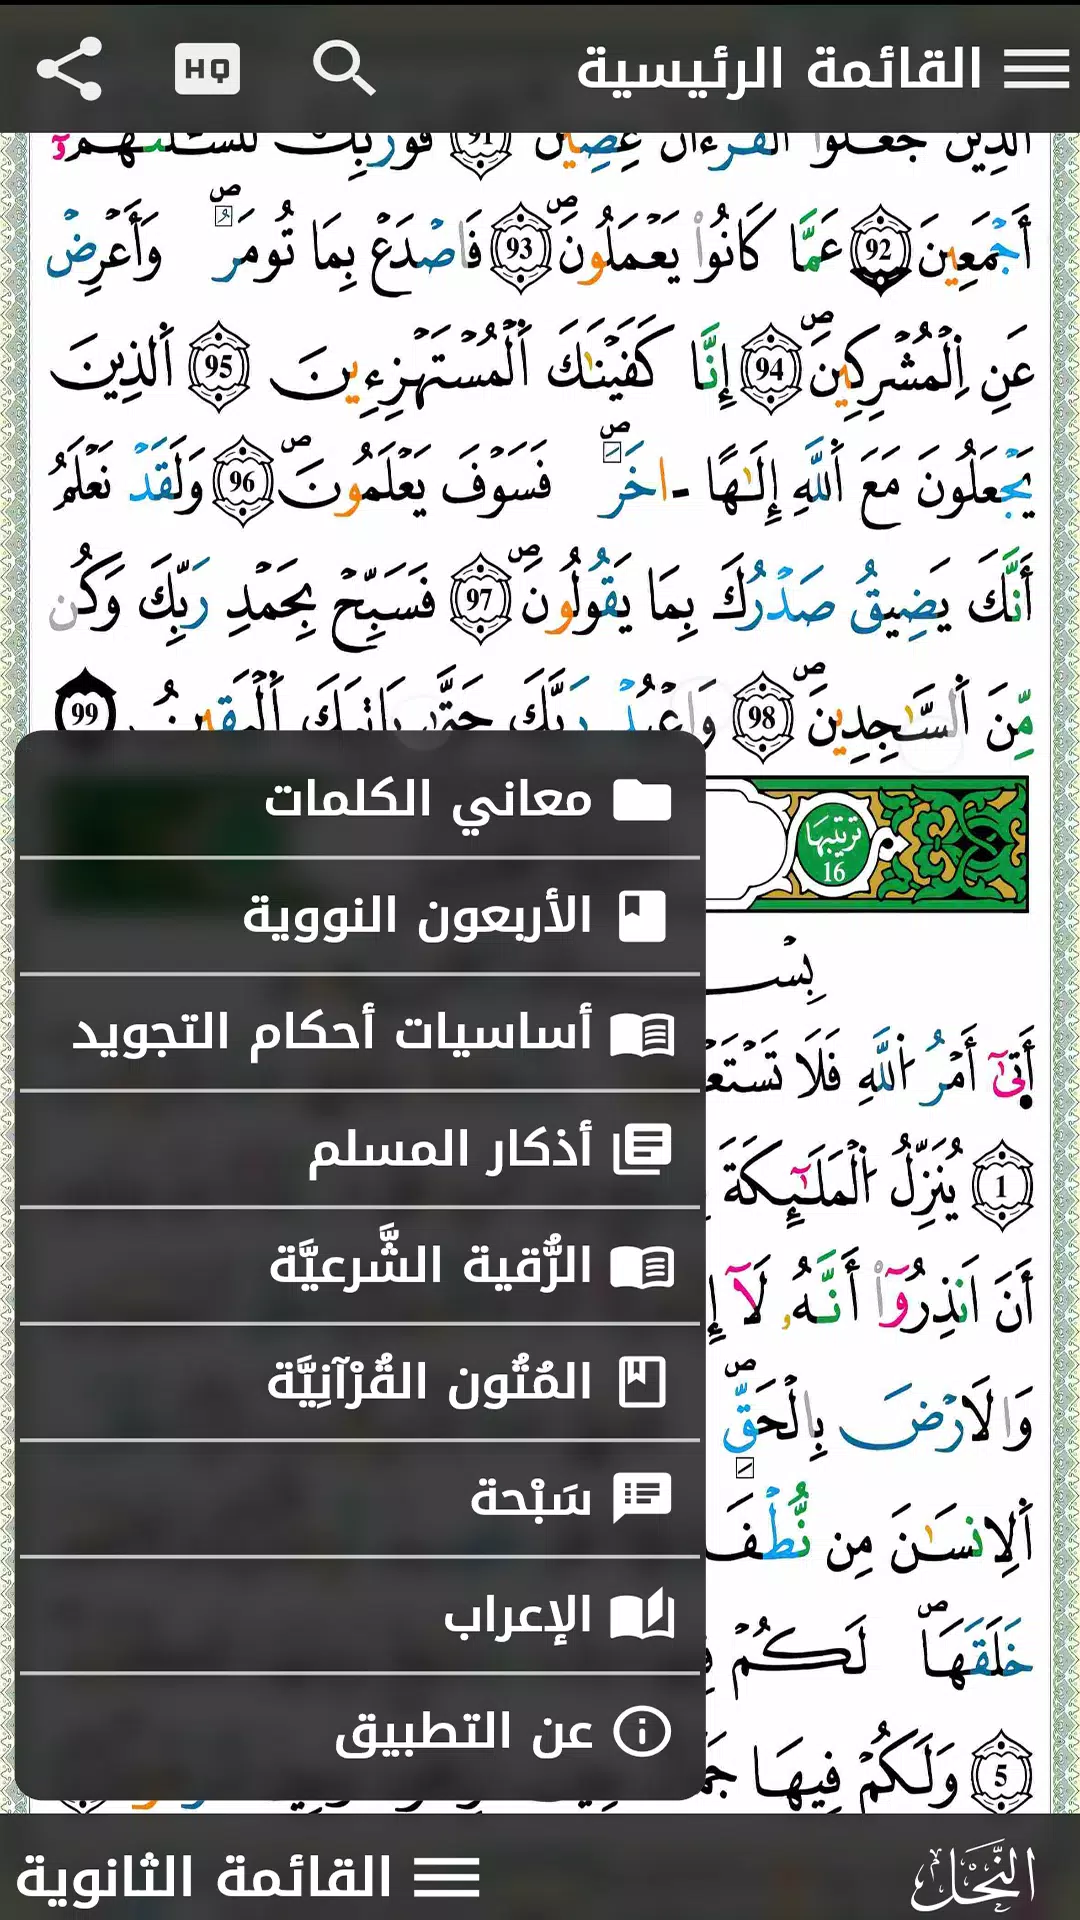 القائمة الرئيسية HQ
الذِينَ جَعَلُوا اُ۬لْقُرْءَانَ عِضِينَ 91 فَوَرَبِّكَ لَنَسْـَٔلَنَّهُمُۥٓ
أَجْمَعِينَ 92 عَمَّا كَانُواْ يَعْمَلُونَۖ 93 فَاصْدَعْ بِمَا تُومَرُۖ وَأَعْرِضْ
عَنِ اِ۬لْمُشْرِكِينَۖ 94 إِنَّا كَفَيْنَٰكَ اَ۬لْمُسْتَهْزِءِينَ 95 اَ۬لذِينَ
يَجْعَلُونَ مَعَ اَ۬للَّهِ إِلَٰهاً ـ اخَرَۖ فَسَوْفَ يَعْلَمُونَۖ 96 وَلَقَدْ نَعْلَمُ
أَنَّكَ يَضِيقُ صَدْرُكَ بِمَا يَقُولُونَۖ 97 فَسَبِّحْ بِحَمْدِ رَبِّكَ وَكُن
مِّنَ اَ۬لسَّٰجِدِينَۖ 98 وَاعْبُدْ رَبَّكَ حَتَّىٰ يَاتِيَكَ اَ۬لْيَقِينُ 99
ترتيبها
16
بِسْـ
أَتَىٰٓ أَمْرُ اُ۬للَّهِ فَلَا تَسْتَعْ
1 يُنَزِّلُ اُ۬لْمَلَٰٓئِكَةَ
أَنَ اَنذِرُوٓاْ أَنَّهُۥ لَآ إِ
وَالَارْضَ بِالْحَقِّۖ
اَ۬لِانسَٰنَ مِن نُّطْفَ
خَلَقَهَاۖ لَكُمْ فِ
5 وَلَكُمْ فِيهَا جَمَ
معاني الكلمات
الأربعون النووية
أساسيات أحكام التجويد
أذكار المسلم
الرُّقية الشَّرعيَّة
المُتُون القُرْآنِيَّة
سَبْحة
الإعراب
عن التطبيق
النَّحل القائمة الثانوية